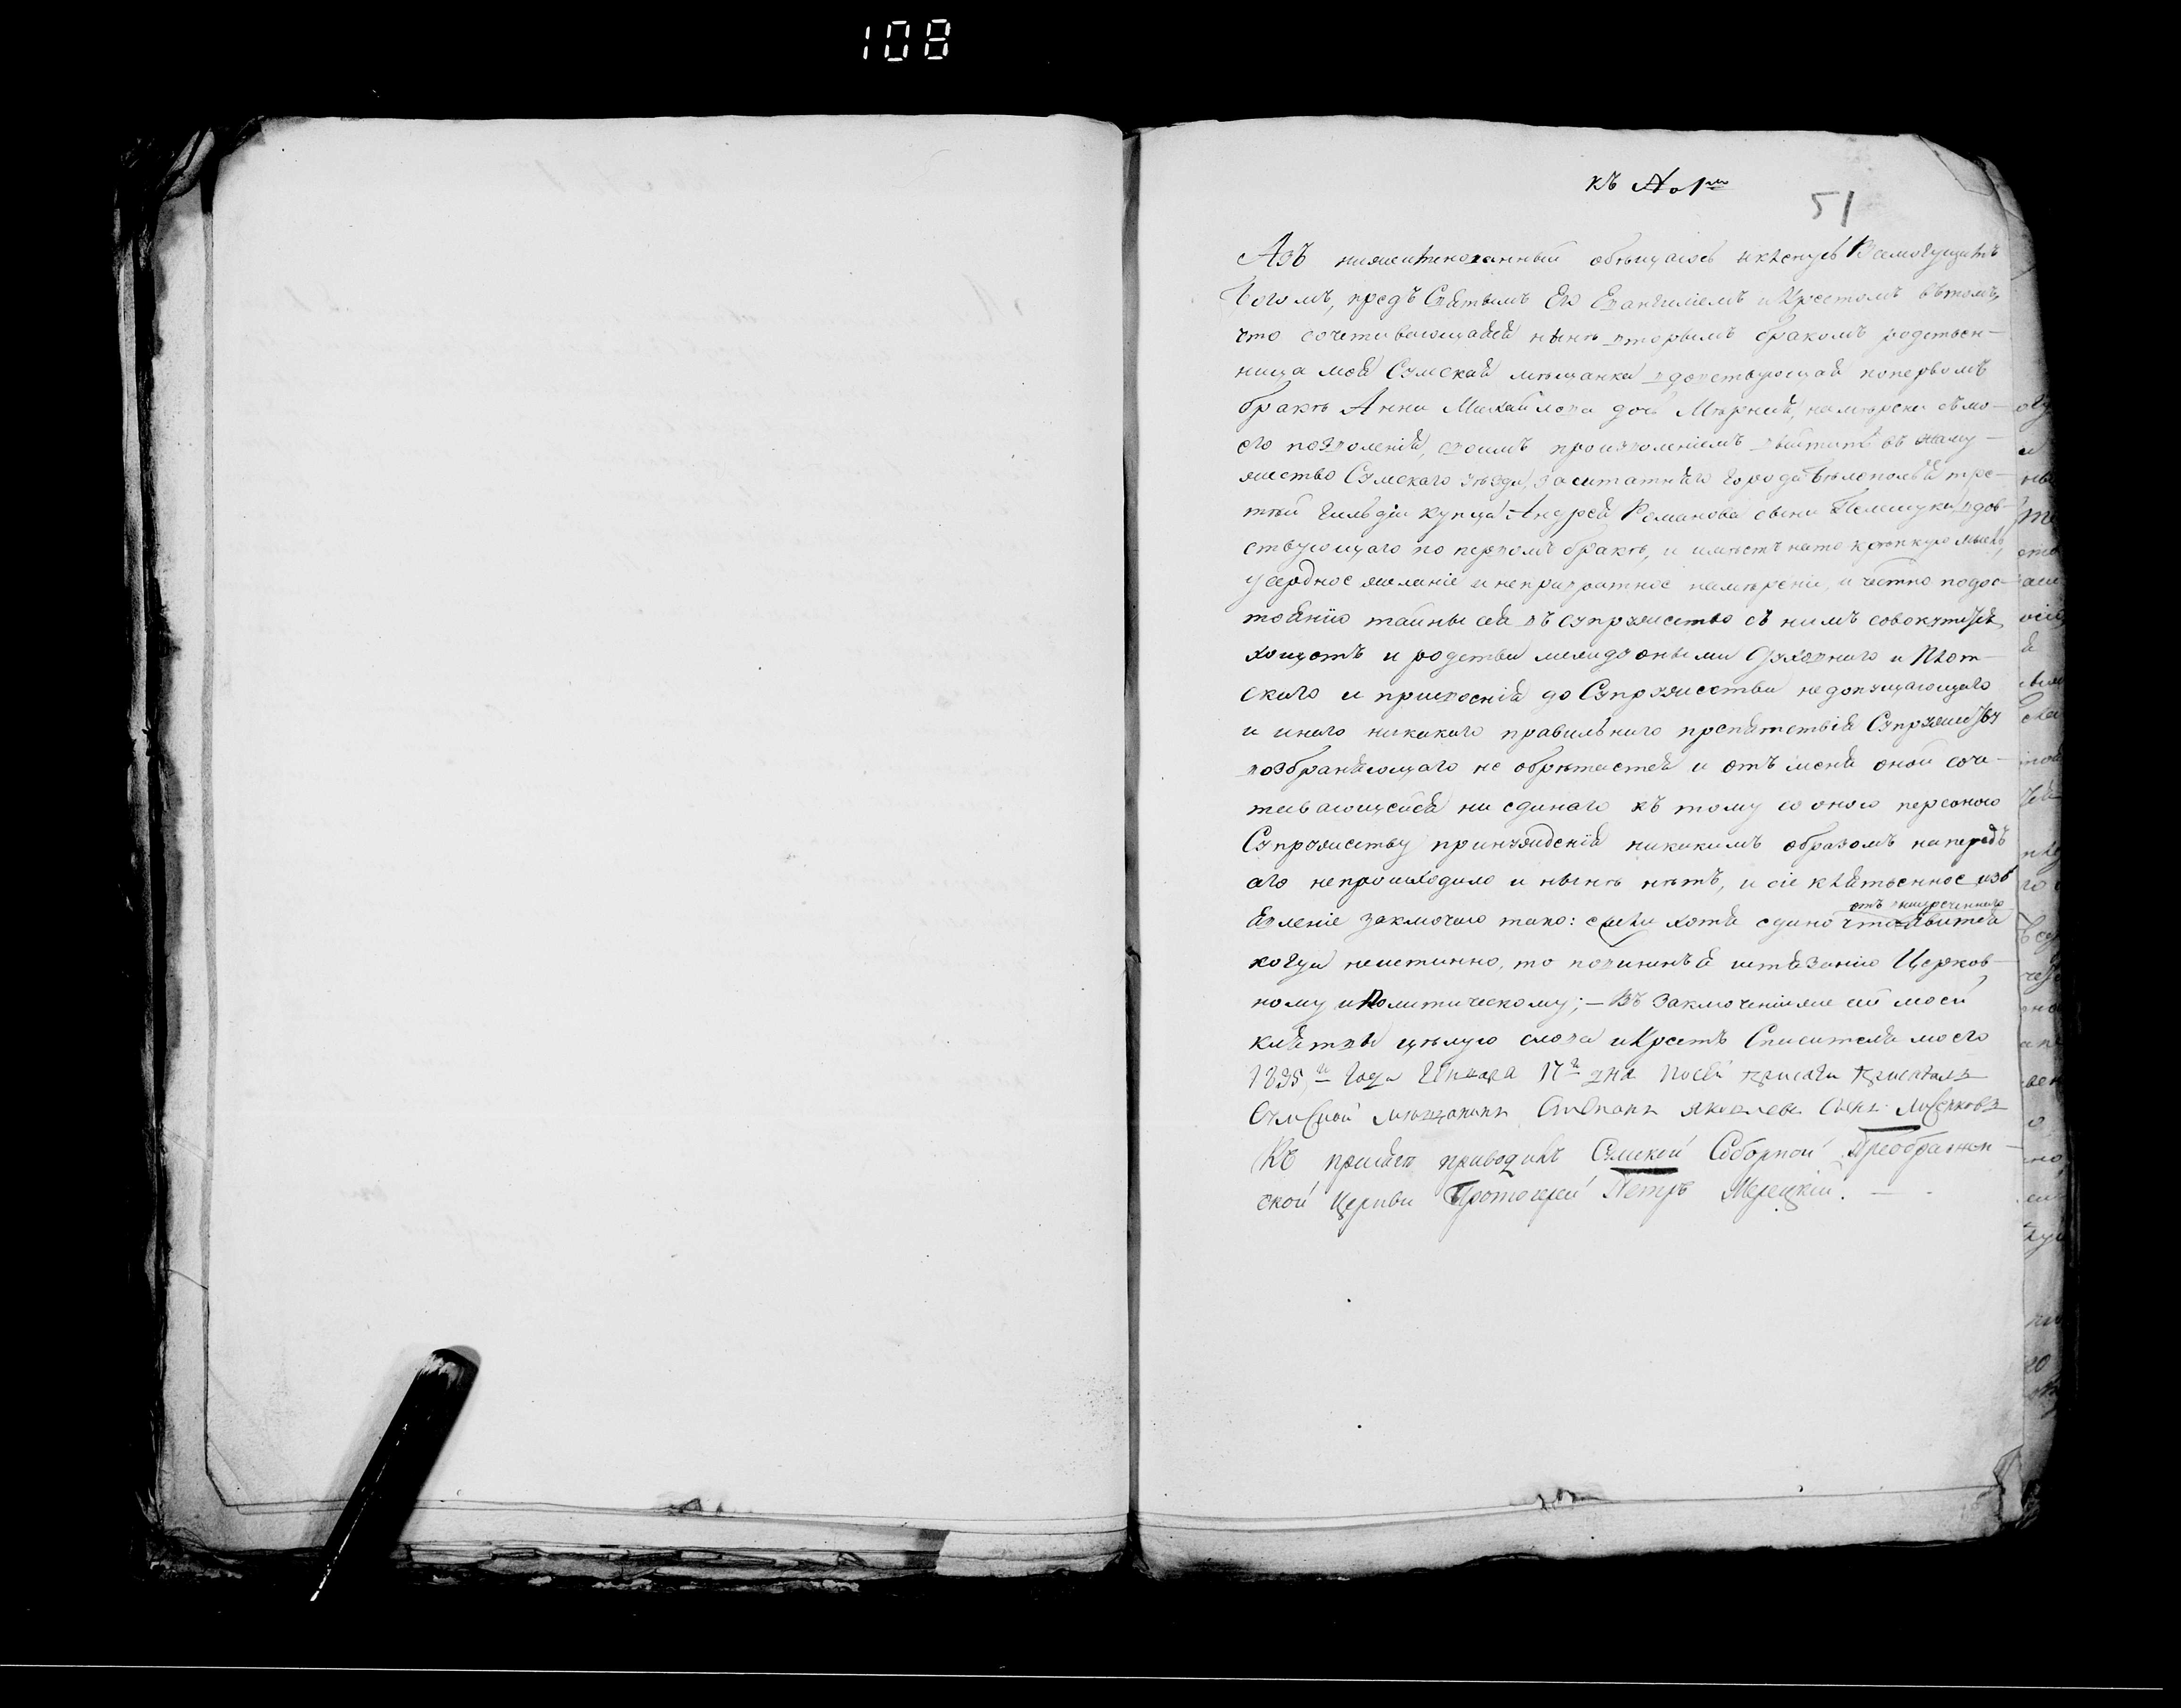 108
къ № 1му
51
Азъ нижеименованный обѣщаюсь и кленусь Всемогущимъ
Богомъ, предъ Святымъ Его Евангиліемъ и Крестомъ вътомъ,
что сочетивающаяся нынѣ вторымъ бракомъ родствен-
ница моя Сумская мѣщанка вдовствующая поперьвомъ
бракѣ Анна Михайлова дочь намѣрена съмо-
его позволенія, своимъ произволеніемъ въ заму-
жество Сумскаго уѣзда, заштатнаго города Бѣлополья тре-
тей гильдіи купца Андрея Романова сына вдов-
ствующаго по первомъ бракѣ, и имѣетъ нато крѣпкую мысль,
усердное желаніе и непривратное намѣреніе, и честно подос-
тоянію тайны сея въ супружество съ нимъ совокупится
хощетъ и родства между оными духовнаго и плот-
скаго и присвоенія до Супружества недопущающаго
и инаго никакаго правильнаго препятствія Супружеству
возбраняющаго не обрѣтаетея и отъ меня оной соче-
тивающейся ни единаго къ тому со оною персоною
Супружеству принужденія никакимъ образомъ напредъ
сего непроисходило и нынѣ нѣтъ, и сіе клятвенное изъ
явленіе заключаю тако: если хотя едино что явится
отъ вышереченнаго
когда неистинно, то повиненъ я истязанію Церков-
ному и Политическому; — Въ заключеніиже сей моей
клятвы цѣлую слова и Крестъ Спасителя моего
1835го года Января 17го дна Посей присяги присягалъ
Сумской мещанинъ Степанъ Яковлевъ сынъ
Къ присягѣ приводилъ Сумской Соборной Преображен-
ской Церкви Протоіерей Петръ